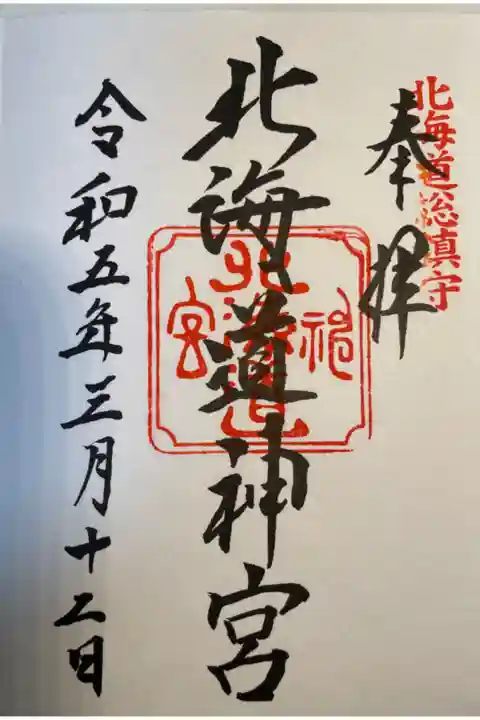 北海道総鎮守
奉拝
北海道神宮
北海道神宮
令和五年三月十二日